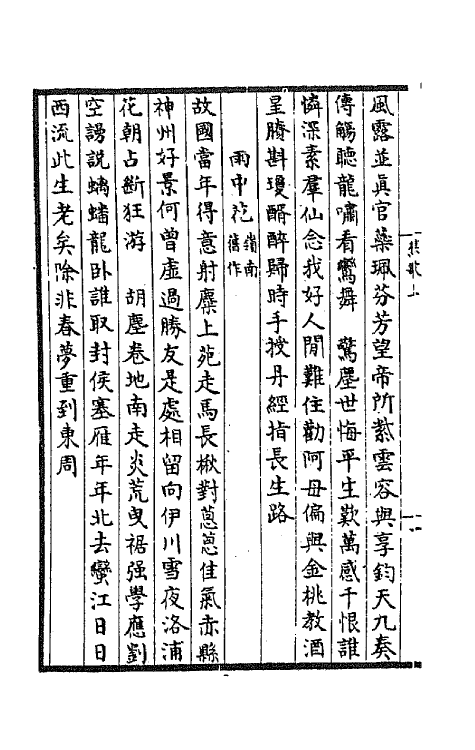 風露並真官蘂珮芬芳望帝所紫雲容與享鈞天九奏
傳觴聽龍嘯看鸞舞　驚塵世悔平生歎萬感千恨誰
憐深素羣仙念我好人間難住勸阿母偏與金桃教酒
星賸斟瓊醑醉歸時手授丹經指長生路
雨中花嶺南舊作
故國當年得意射麋上苑走馬長楸對蔥蔥佳氣赤縣
神州好景何曾虛過勝友是處相留向伊川雪夜洛浦
花朝占斷狂游　胡塵卷地南走炎荒曳裾强學應劉
空謾說螭蟠龍卧誰取封侯塞雁年年北去蠻江日日
西流此生老矣除非春夢重到東周
樵歌上